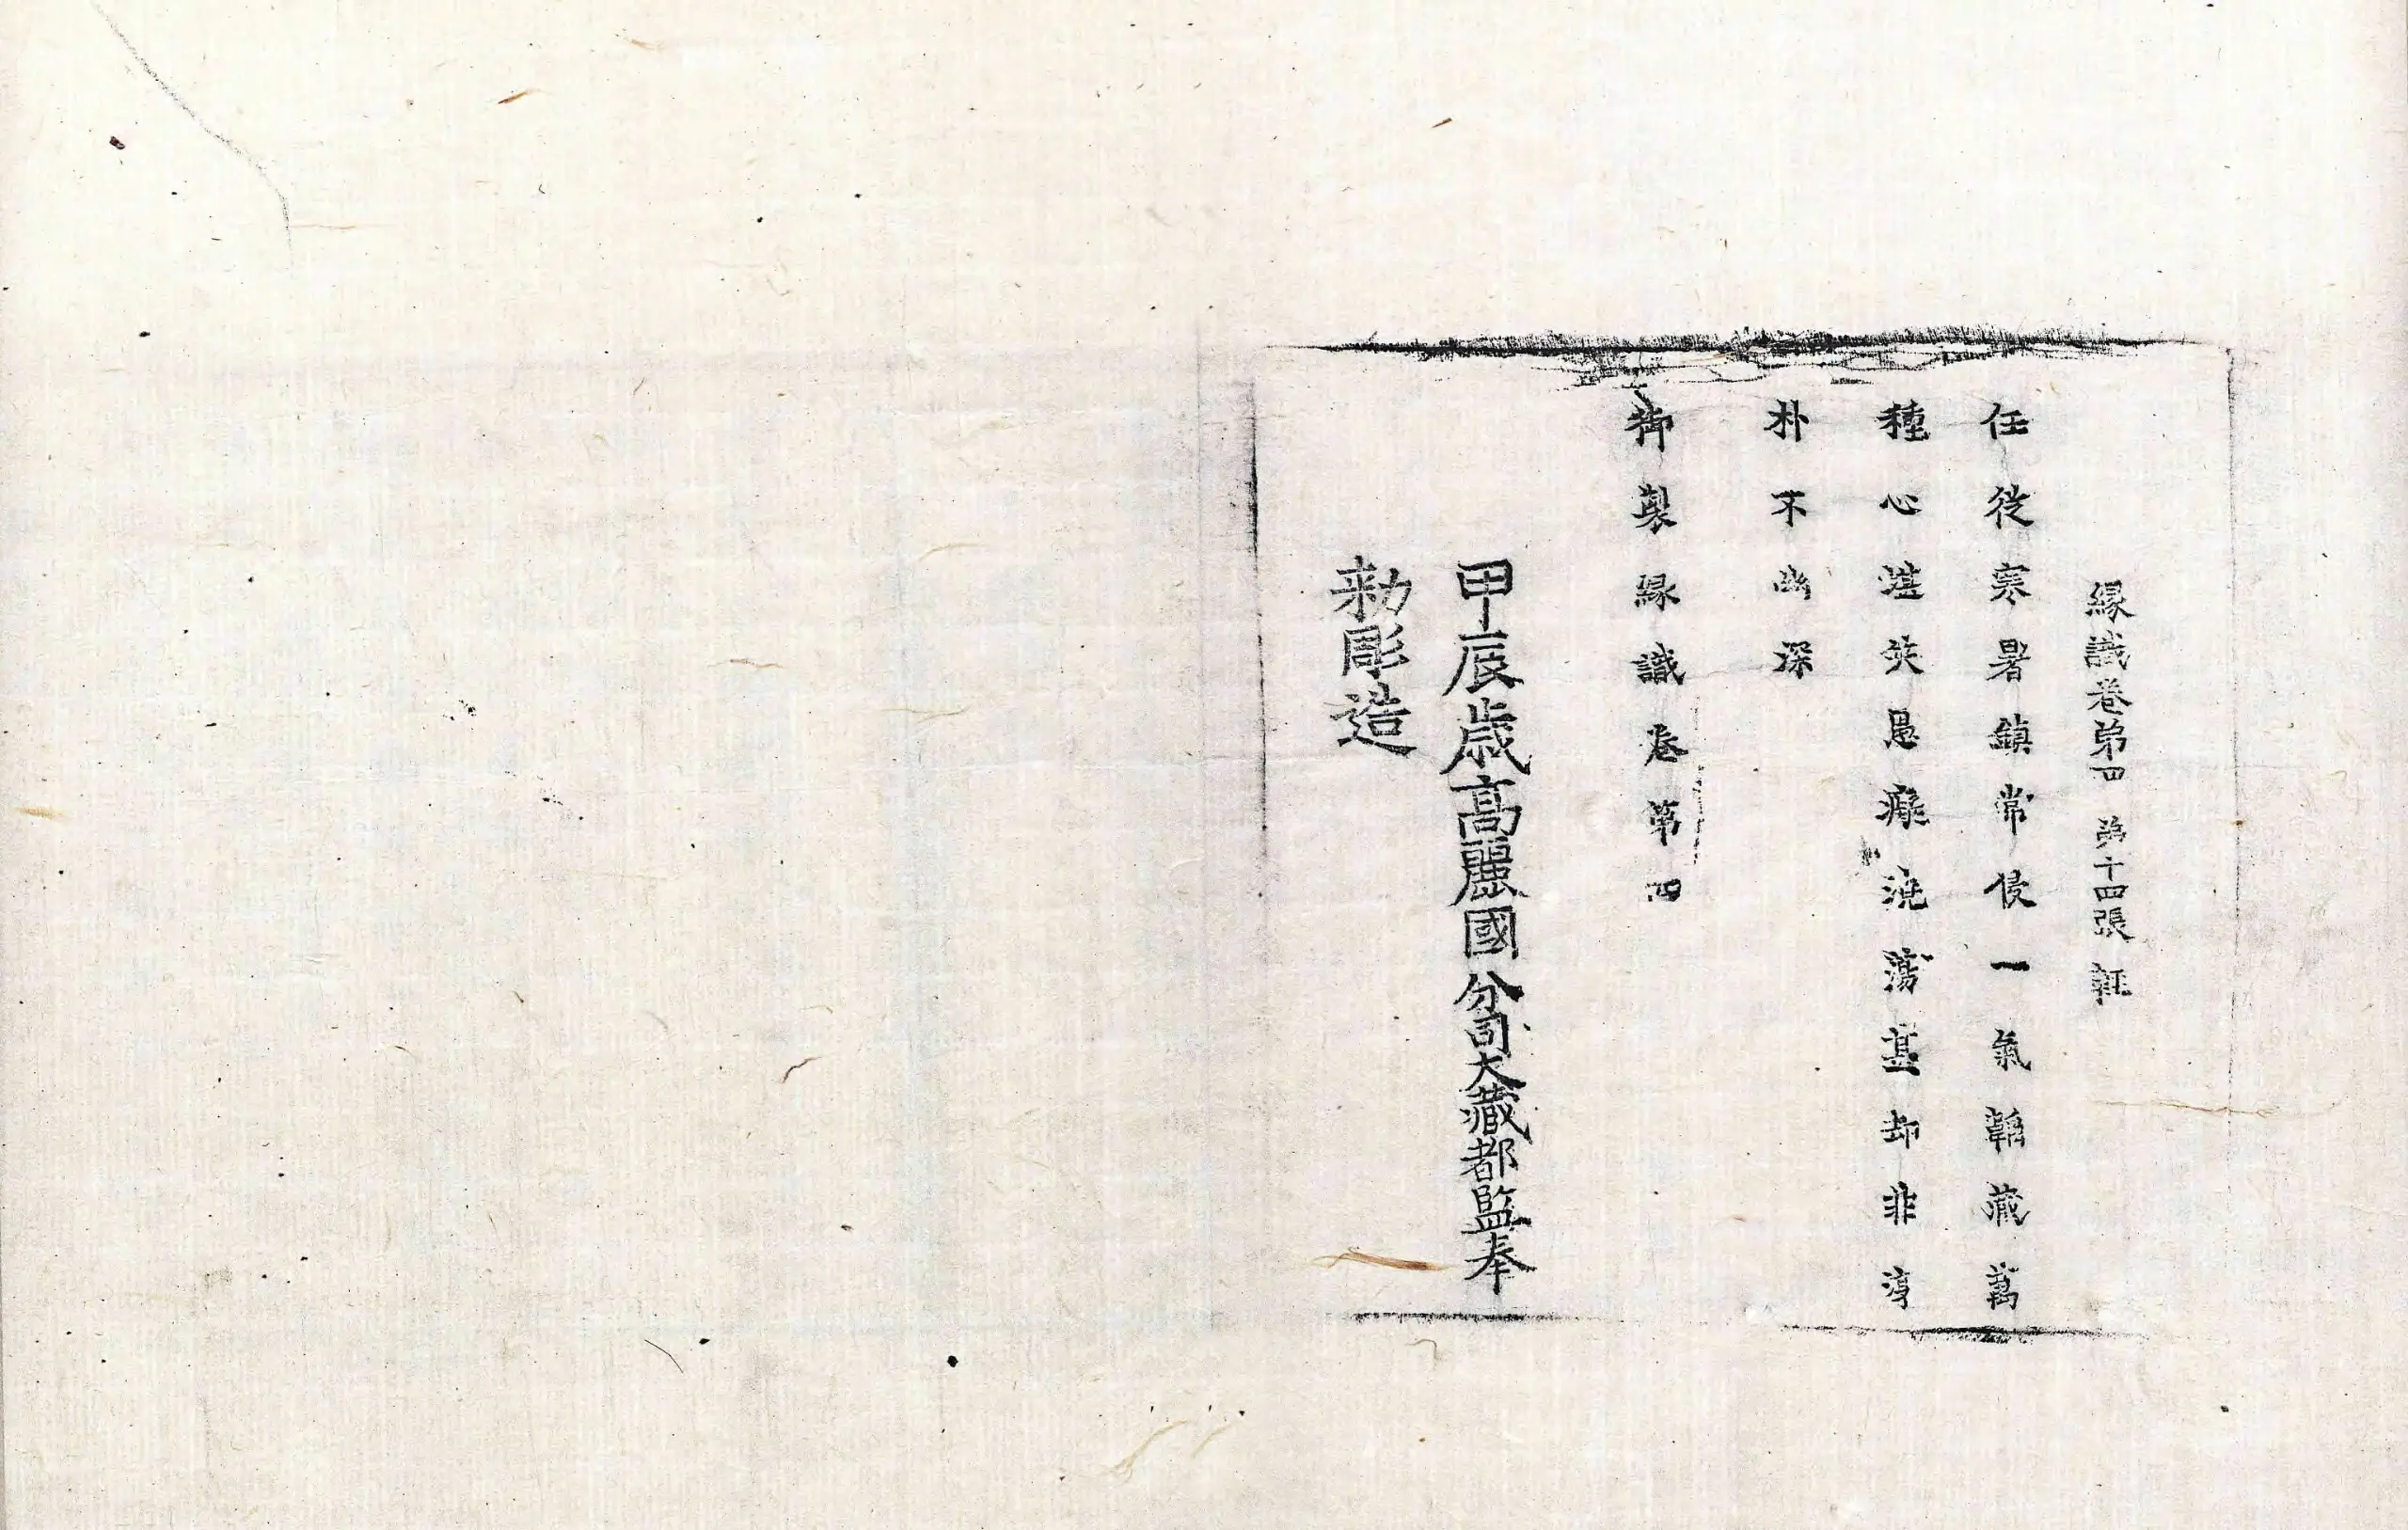 緣識卷第四 第十四張 䡄
任從寒暑鎮常侵一氣韜藏萬
種心湛然愚癡澆蕩甚却非淳
朴不幽深
御製緣識卷第四
甲辰歲高麗國分司大藏都監奉
勑彫造